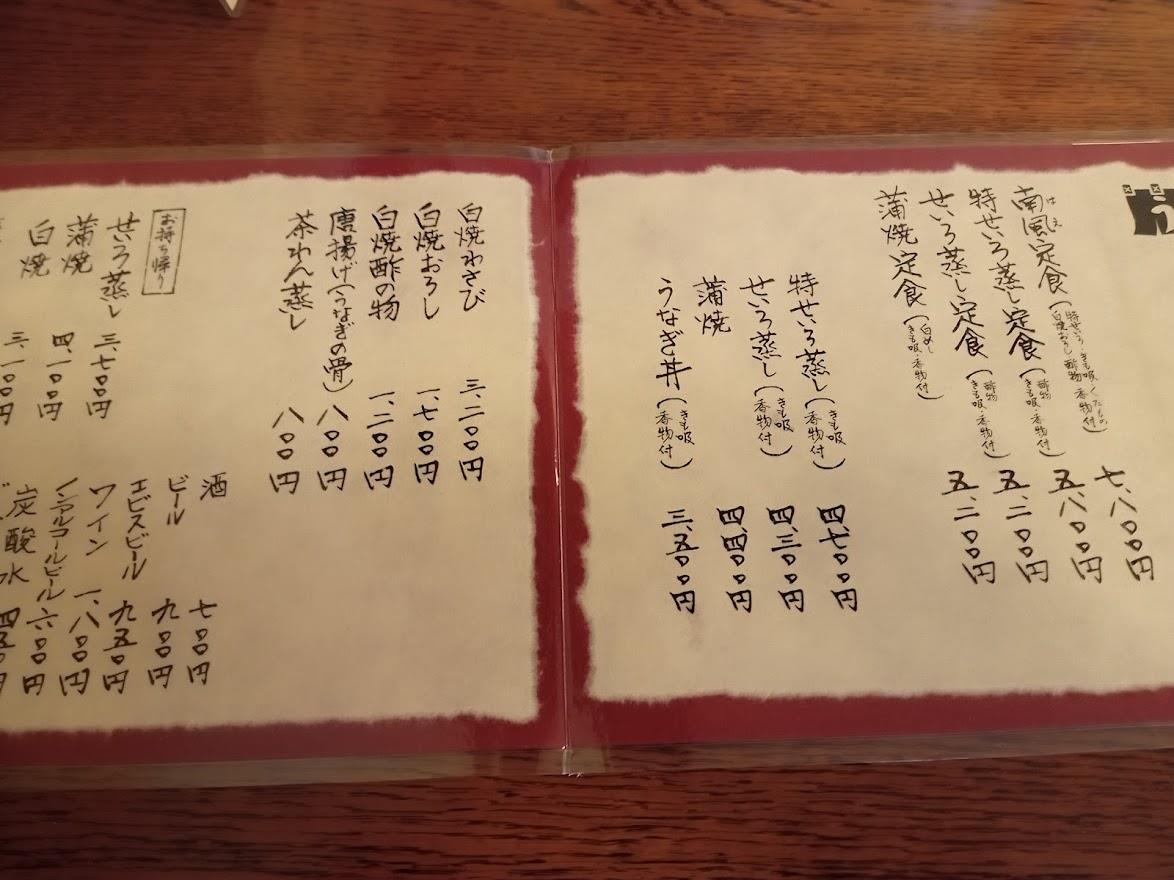 う
南風定食(特せいろ・きも吸・くだもの 白焼おろし 酢物 香物付) 七、八〇〇円
はえ
特せいろ蒸し定食(酢物 きも吸・香物付) 五、八〇〇円
せいろ蒸し定食(酢物 きも吸・香物付) 五、二〇〇円
蒲焼定食(白めし きも吸・香物付) 五、二〇〇円
特せいろ蒸し(きも吸 香物付) 四、七〇〇円
せいろ蒸し(きも吸 香物付) 四、三〇〇円
蒲焼 四、四〇〇円
うなぎ丼(きも吸 香物付) 三、五〇〇円
白焼わさび 三、二〇〇円
白焼おろし 一、七〇〇円
白焼酢の物 一、二〇〇円
唐揚げ(うなぎの骨) 八〇〇円
茶わん蒸し 八〇〇円
お持ち帰り
せいろ蒸し 三、七〇〇円
蒲焼 四、一〇〇円
白焼 三、一〇〇円
酒 七〇〇円
ビール 九〇〇円
エビスビール 九五〇円
ワイン 一、八〇〇円
ノンアルコールビール 六〇〇円
炭酸水 四五〇円